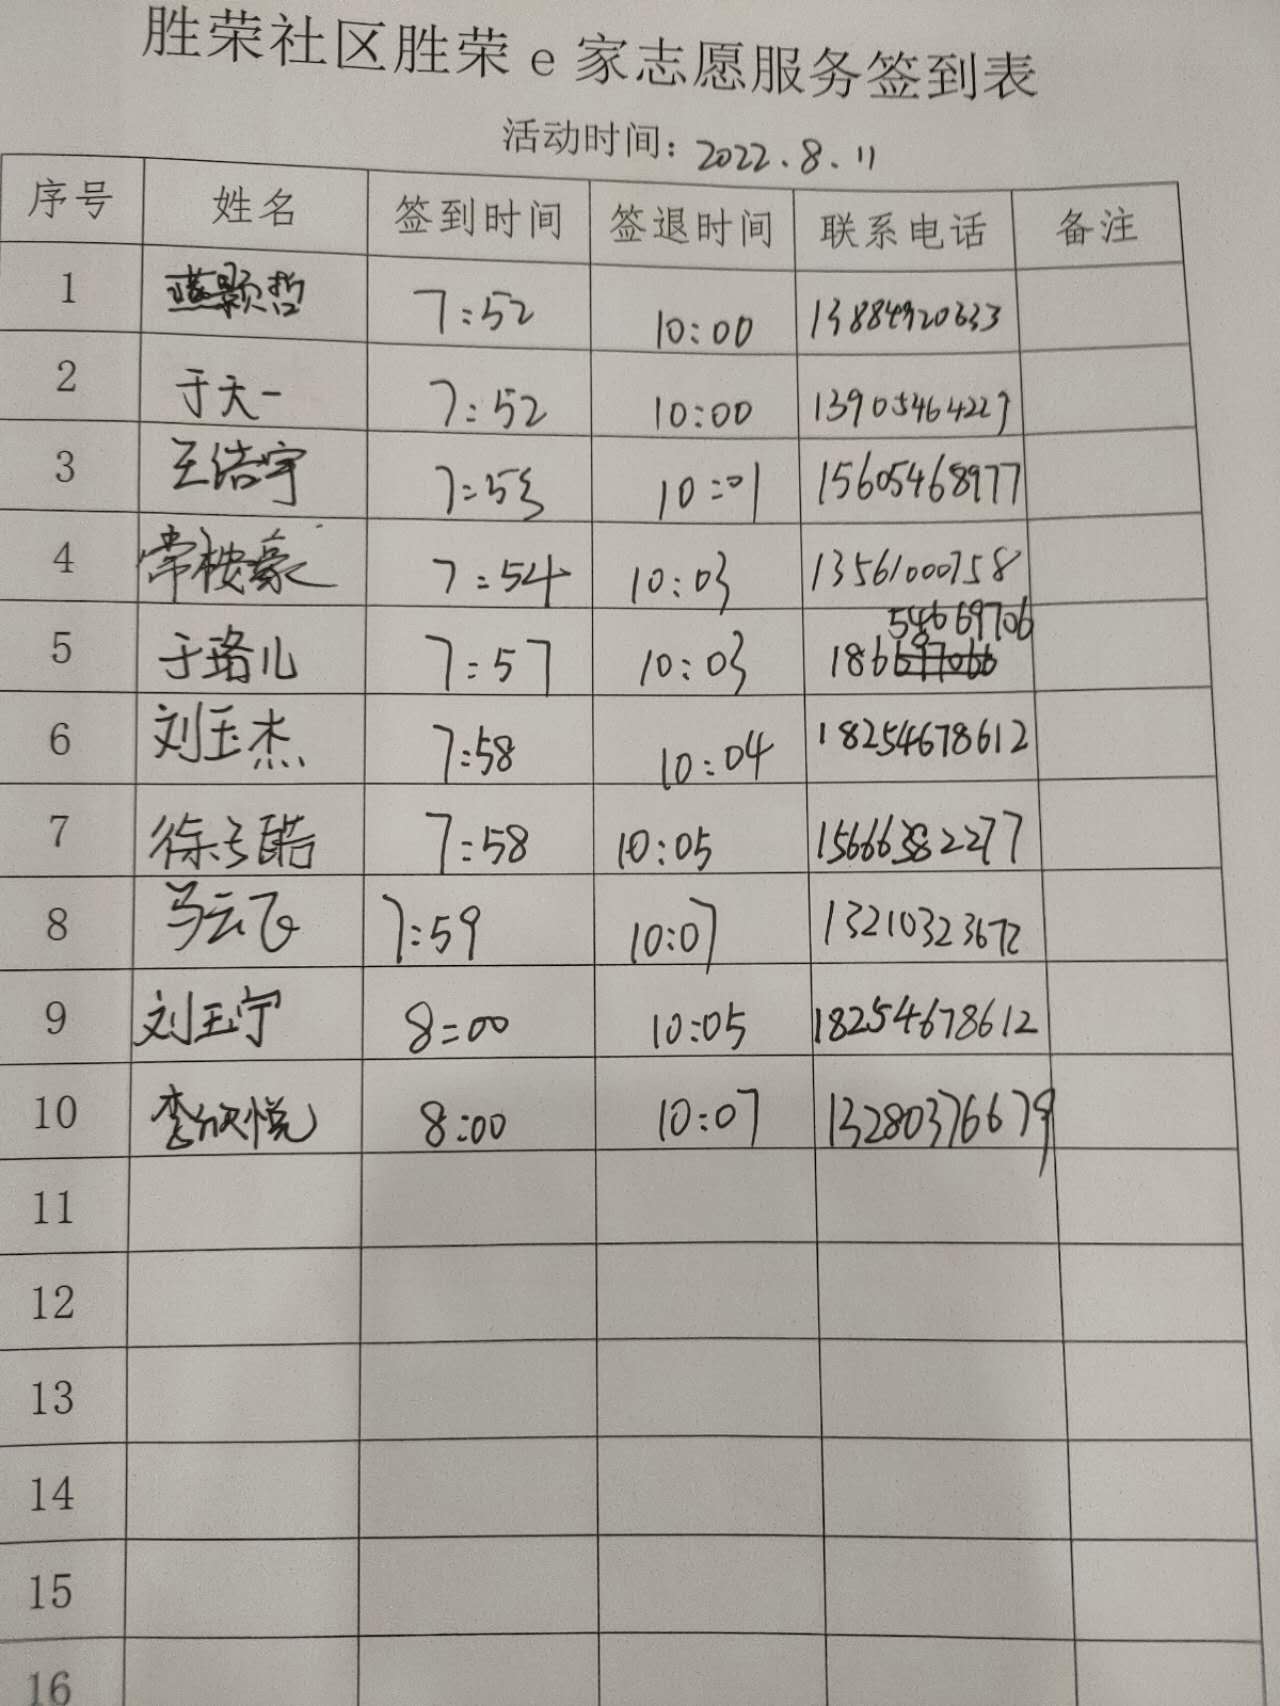 胜荣社区胜荣e家志愿服务签到表
活动时间：2022.8.11
序号 姓名 签到时间 签退时间 联系电话 备注
1 7:52 10:00 13884920633
2 于天一 7:52 10:00 13905464227
3 王浩宇 7:53 10:01 15605468977
4 常桉豪 7:54 10:03 13561000758
54669706
5 于珞儿 7:57 10:03 186
6 刘玉杰 7:58 10:04 18254678612
7 7:58 10:05 15666382277
8 马云飞 7:59 10:07 13210323672
9 刘玉宁 8:00 10:05 18254678612
10 李欣悦 8:00 10:07 13280376679
11
12
13
14
15
16